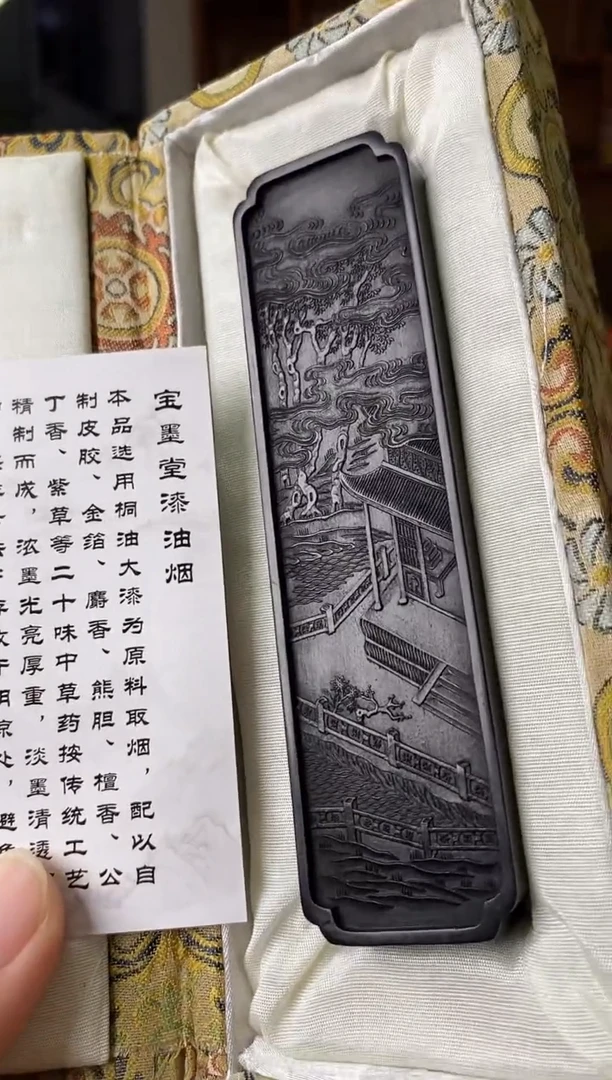 宝墨堂漆油烟
本品选用桐油大漆为原料取烟，配以自
制皮胶、金箔、麝香、熊胆、檀香、公
丁香、紫草等二十味中草药按传统工艺
精制而成，浓墨光亮厚重，淡墨清透
处，避